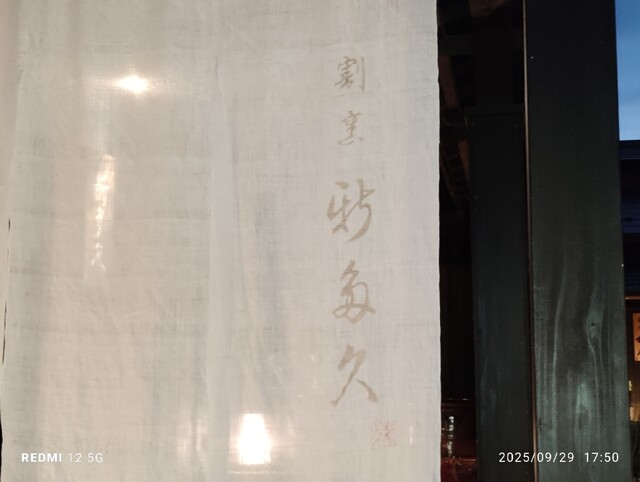 割烹 新多久
REDMI 12 5G
2025/09/29 17:50